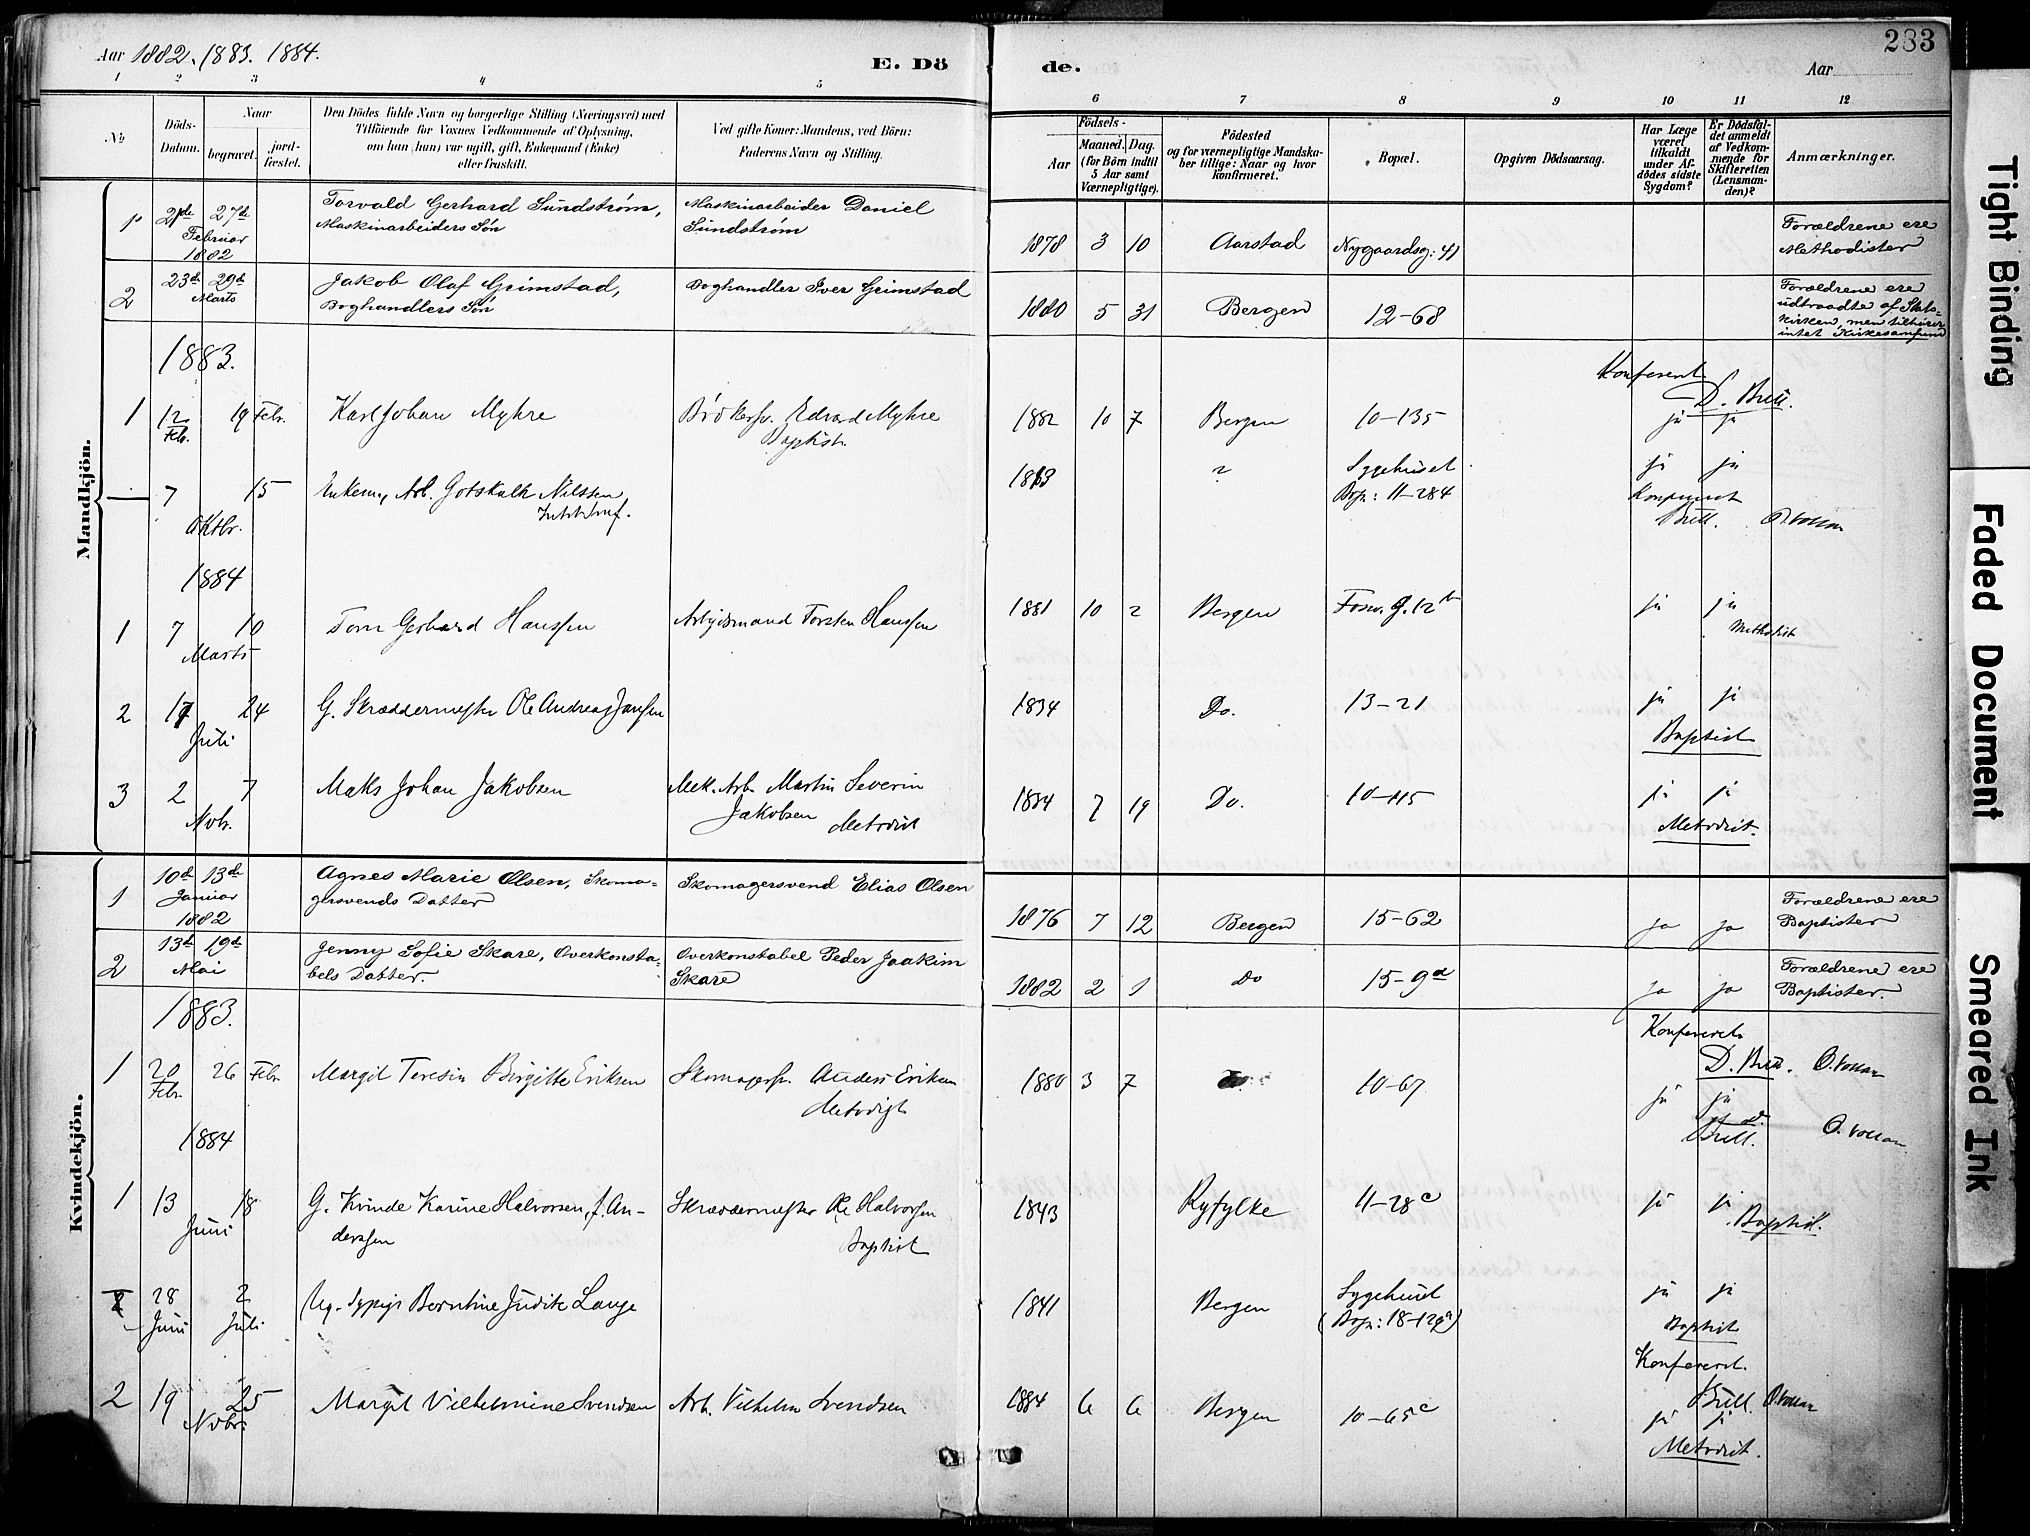 Aar 1882. 1883. 1884.
E. Dö
de.
Aar
283
1 2 3 4 5 6 7 8 9 10 11 12
No
Döds-
Datum.
Naar
begravet.
jord-
fæstet.
Den Dödes fulde Navn og borgerlige Stilling (Næringsvei) med
Tilföiende for Voxnes Vedkommende af Oplysning,
om han (hun) var ugift, gift, Enkemand (Enke)
eller fraskilt.
Ved gifte Koner: Mandens, ved Börn:
Faderens Navn og Stilling.
Födsels-
Aar
Maaned.
Dag.
(for Börn indtil
5 Aar samt
Værnepligtige).
Födested
og for værnepligtige Mandska-
ber tillige: Naar og hvor
konfirmeret.
Bopæl.
Opgiven Dödsaarsag.
Har Læge
været
tilkaldt
under Af-
dödes sidste
Sygdom?
Er Dødsfal-
det anmeldt
af Vedkom-
mende for
Skifteretten
(Lensman-
den)?
Anmærkninger.
Mandkjön.
27de
Februar
1882
Torvald Gerhard Sundstrøm,
Maskinarbeiders Søn
Maskinarbeider Daniel
Sundstrøm
1878 3 10 Aarstad Nygaardsg: 41
Forældrene ere
Methodister
2 23de 29de
Marts
Jakob Olaf Grimstad,
Boghandlers Søn
Boghandler Iver Grimstad
1880 5 31 Bergen 12-68
Forældrene ere
udtraadte af Stats-
kirken, men tilhører
intet Kirkesamfund
1883.
Konfereret.
D. Brill.
1 12 Febr. 19 Febr. Karl Johan Myhre
Edvard Myhre
Baptist.
1882 10 7 Bergen 10-135 ja ja
7 15
Oktbr.
Enkem, Arb. Gotskalk Nilssen
? Sygehuset
Bop: 11-284
ja ja
Konfereret
Brill. O. Vollan
1884
1 7 10
Marts
Gerhard Hanssen
Arbeidsmand Torsten Hanssen
1881 10 2 Bergen ja ja
Methodist
2 17 24
Juli
G. Skræddermester Ole Andreas Jansen
1834 Do. 13-21 ja ja
Baptist
3 2 7
Novbr.
Maks Johan Jakobsen
Mek. Arb. Martin Severin
Jakobsen Metodist
1884 7 19 Do. 10-115 ja ja
Metodist.
Kvindekjön.
1 10de 13de
Januar
1882
Agnes Marie Olsen, Skoma-
gersvends Datter
Skomagersvend Elias Olsen
1876 7 12 Bergen 15-62 Ja Ja
Forældrene ere
Baptister
2 13de 19de
Mai
Jenny Sofie Skare, Overkonsta-
bels Datter.
Overkonstabel Peder Joakim
Skare
1882 2 1 Do 15-9d Ja Ja
Forældrene ere
Baptister.
1883.
Konfereret.
D. Brill. O. Vollan
1 20 Febr. 26 Febr. Margit Teresia Birgitte Eriksen
Anders Eriksen
Metodist
1880 3 7 10-67 ja ja
1884
Brill. O. Vollan
1 13 18
Juni
G. Kvinde Karine Halvorsen, f. An-
dersen
Skræddermester Ole Halvorsen
Baptist
1843 Ryfylke 11-28c ja ja
Baptist.
28 2
Juni Juli
Ug. Sypige Berntine Judite Lange
1841 Bergen Sygehuset
(Bop: 18-12a)
ja ja
Baptist
Konfereret.
Brill. O. Vollan
2 19 25
Novbr.
Margit Vilhelmine Svendsen Arb. Vilhelm Svendsen
1884 6 6 Bergen 10-65c ja ja
Metodist.
Tight Binding
Faded Document
Smeared Ink